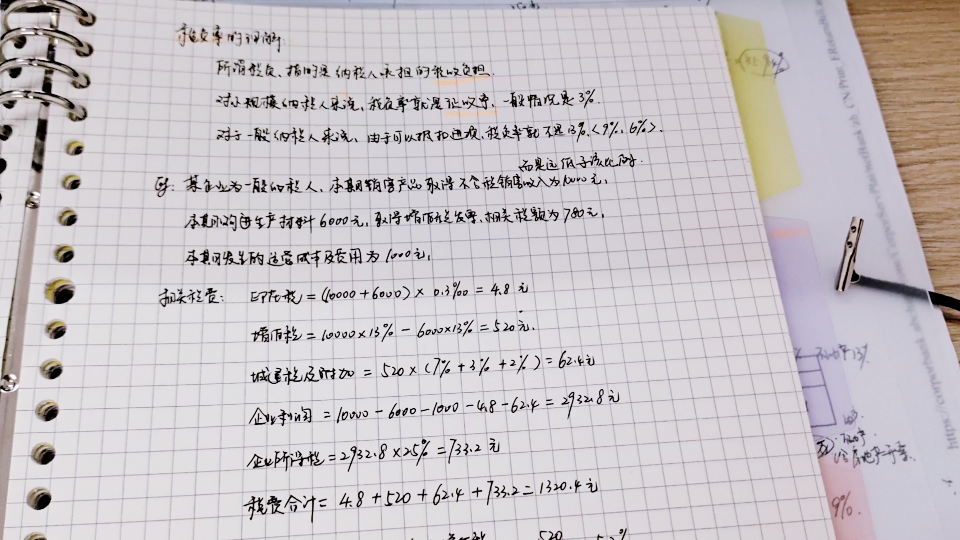 税负率的理解
所谓税负,指的是纳税人承担的税收负担.
对小规模纳税人来说,税负率就是征收率,一般情况是3%.
对于一般纳税人来说,由于可以抵扣进项,税负率就不是13%(9%,6%).
而是远低于该比例.
例:某企业为一般纳税人,本期销售产品取得不含税销售收入为10000元,
本期购进生产材料6000元,取得增值税发票,相关税额为780元,
本期发生的运营成本及费用为1000元,
相关税费: 印花税=(10000+6000)×0.3‰=4.8元
增值税=10000×13%-6000×13%=520元.
城建税及附加=520×(7%+3%+2%)=62.4元
企业利润=10000-6000-1000-4.8-62.4=2932.8元
企业所得税=2932.8×25%=733.2元
税费合计=4.8+520+62.4+733.2=1320.4元
520
不动产
9%.